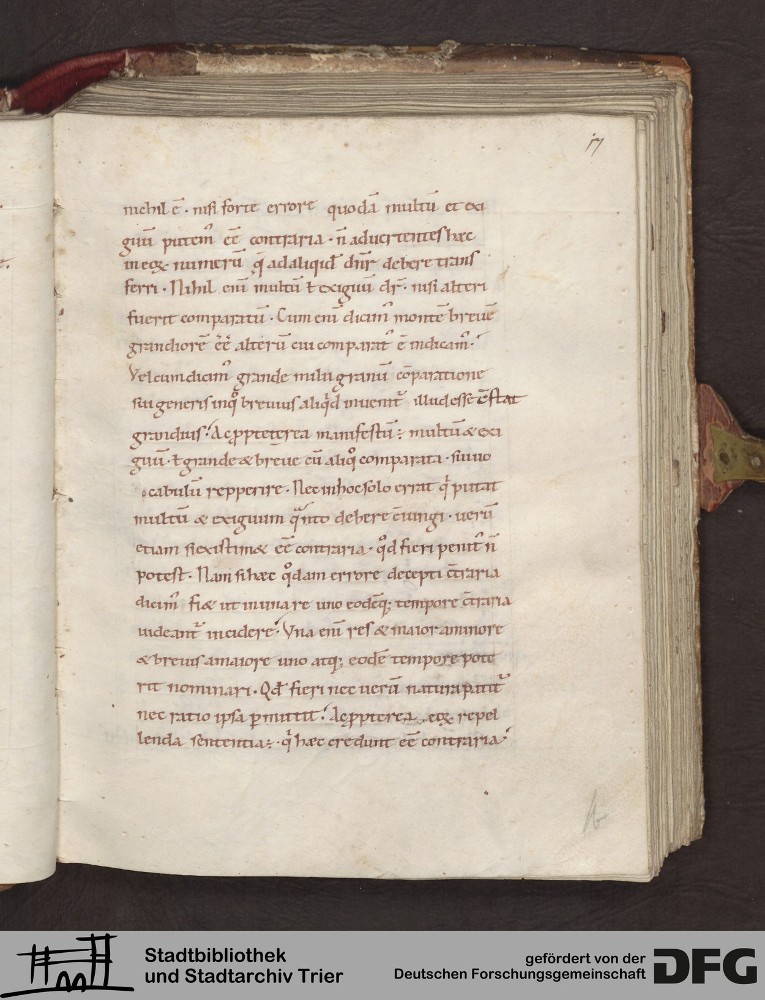 17
nichil ē · nisi forte errore quodā multū et exi
guū putemꝰ eē contraria · n̄ aduertentes hæc
in eoꝝ numerū q̨ ad aliquid dn̄r debere trans
ferri · Nihil enī multū ł exiguū dr̄ · nisi alteri
fuerit comparatū · Cum enī dicimꝰ montē breuē
grandiorē eē alterū cui comparat᷒ ē indicamꝰ ·
Vel cum dicimꝰ grande milii granū cōparatione
sui generis in quo breuius aliqd inuenit᷒ illud esse c̄stat
grandius · Ac ꝓpterea manifestū; multū & exi
guū · ł grande & breue cū aliqͦ comparata · suū uo
cabulū repperire · Nec in hoc solo errat q̇ putat
multū & exiguum quanto debere c̄iungi · uerū
etiam si existimet eē contraria · qͦd fieri penitꝰ n̄
potest · Nam si hæc qͦdam errore decepti c̄traria
dicimꝰ fiet ut in una re uno eodēq; tempore c̄traria
uideant᷒ incidere · Vna enī res & maior a minore
& breuis a maiore uno atq; eodē tempore pote
rit nominari · Qd̄ fieri nec uerū natura patit᷒
nec ratio ipsa ꝑmittit · Ac ꝓpterea eoꝝ repel
lenda sententia; · q̇ hæc credunt eē contraria
Stadtbibliothek
und Stadtarchiv Trier
gefördert von der
Deutschen Forschungsgemeinschaft
DFG